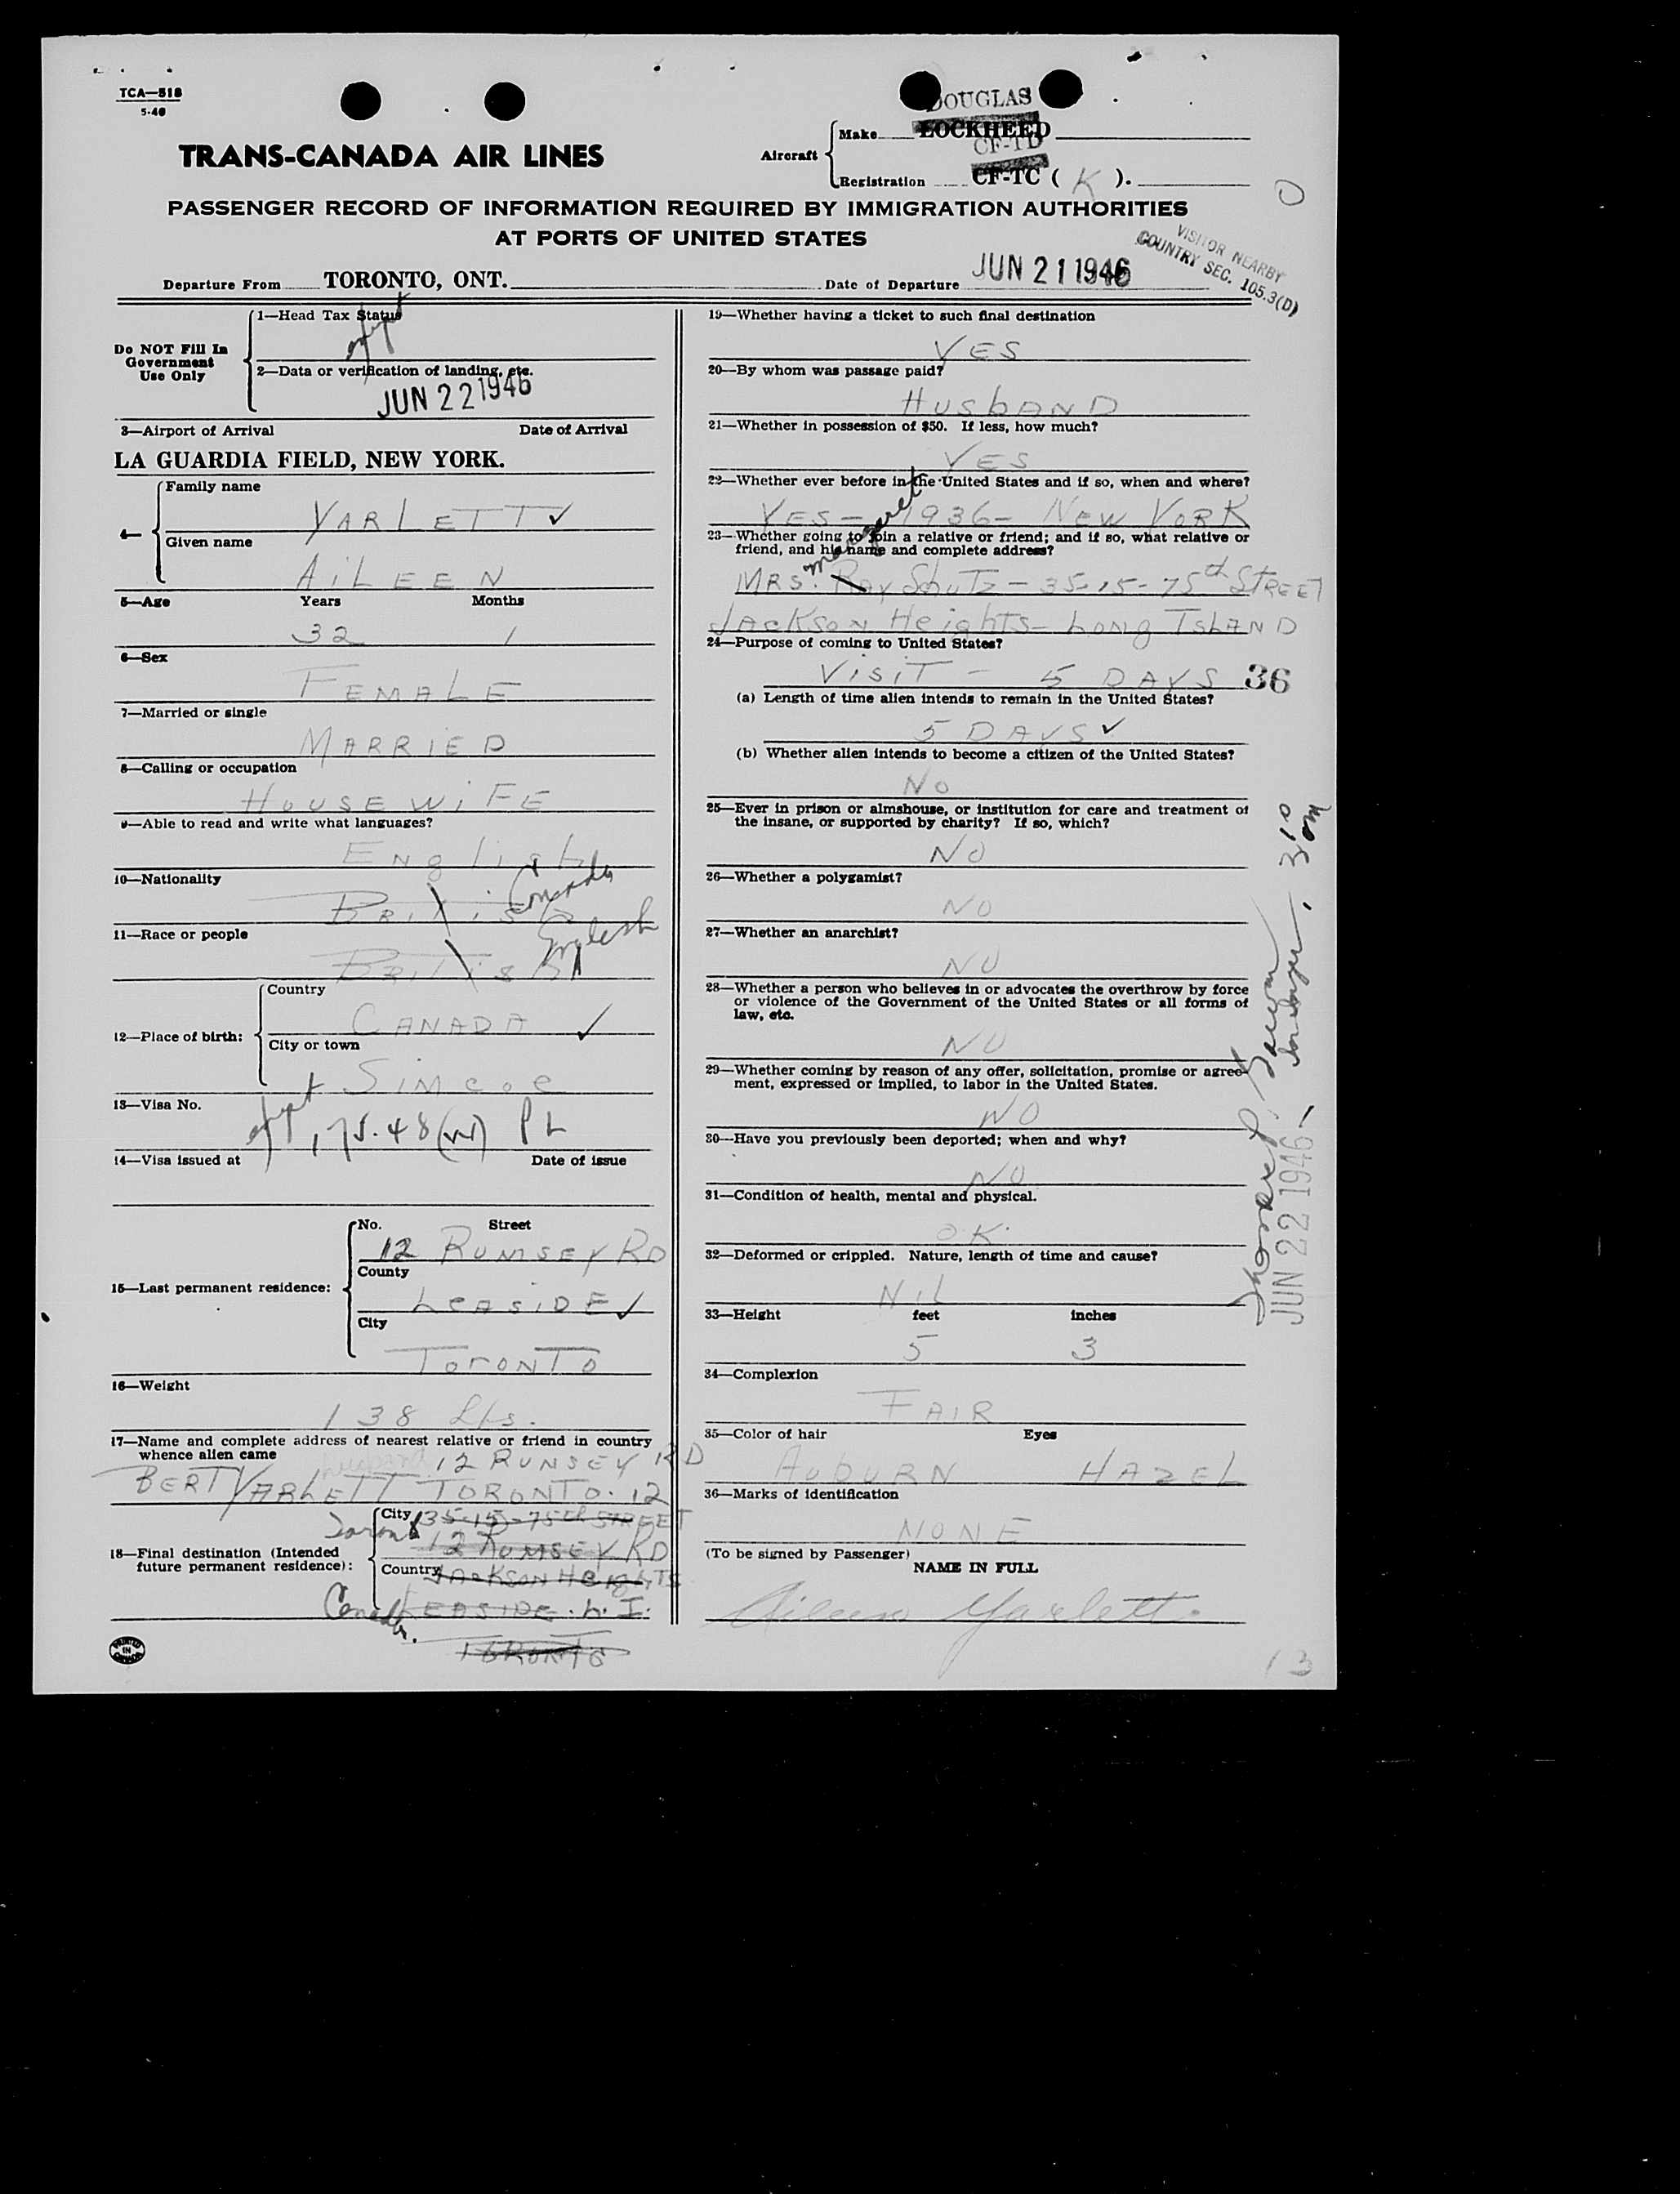 TCA—518
5-40
DOUGLAS
TRANS-CANADA AIR LINES
Aircraft
Make LOCKHEED
CF-TD
Registration CF-TC ( K ).
PASSENGER RECORD OF INFORMATION REQUIRED BY IMMIGRATION AUTHORITIES
AT PORTS OF UNITED STATES
VISITOR NEARBY
COUNTRY SEC. 105.3(D)
Departure From TORONTO, ONT. Date of Departure JUN 21 1946
Do NOT Fill In
Government
Use Only
1—Head Tax Status
2—Data or verification of landing, etc.
JUN 22 1946
3—Airport of Arrival Date of Arrival
LA GUARDIA FIELD, NEW YORK.
4— Family name
YARLETT ✓
Given name
AiLEEN
5—Age Years Months
32 1
6—Sex
FEMALE
7—Married or single
MARRIED
8—Calling or occupation
HOUSEWiFE
9—Able to read and write what languages?
English
10—Nationality
British Canada
11—Race or people
British English
12—Place of birth:
Country
CANADA ✓
City or town
Simcoe
13—Visa No.
175.48(W) PL
14—Visa issued at Date of issue
15—Last permanent residence:
No. Street
12 RUMSEY RD
County
LEASIDE ✓
City
TORONTO
16—Weight
138 Lbs.
17—Name and complete address of nearest relative or friend in country
whence alien came
husband 12 RUNSEY RD
BERT YARLETT TORONTO. 12
18—Final destination (Intended
future permanent residence):
City 35-15-75th STREET
Toronto
12 RUMSEY RD
Country JACKSON HEIGHTS
Canada LEASIDE. L. I.
TORONTO
PRINTED IN CANADA
19—Whether having a ticket to such final destination
YES
20—By whom was passage paid?
HusbAND
21—Whether in possession of $50. If less, how much?
YES
22—Whether ever before in the United States and if so, when and where?
YES — 1936 — NEW YORK
23—Whether going to join a relative or friend; and if so, what relative or
friend, and his name and complete address?
margaret
MRS. RAY SchuTz — 35-15-75th STREET
JACKSON Heights — Long ISLAND
24—Purpose of coming to United States?
VisiT — 5 DAYS 36
(a) Length of time alien intends to remain in the United States?
5 DAYS ✓
(b) Whether alien intends to become a citizen of the United States?
No
25—Ever in prison or almshouse, or institution for care and treatment of
the insane, or supported by charity? If so, which?
NO
26—Whether a polygamist?
NO
27—Whether an anarchist?
NO
28—Whether a person who believes in or advocates the overthrow by force
or violence of the Government of the United States or all forms of
law, etc.
NO
29—Whether coming by reason of any offer, solicitation, promise or agree-
ment, expressed or implied, to labor in the United States.
NO
30—Have you previously been deported; when and why?
NO
31—Condition of health, mental and physical.
OK.
32—Deformed or crippled. Nature, length of time and cause?
NiL
33—Height feet inches
5 3
34—Complexion
FAIR
35—Color of hair Eyes
AUBURN HAZEL
36—Marks of identification
NONE
(To be signed by Passenger)
NAME IN FULL
Aileen Yarlett
JUN 22 1946
13